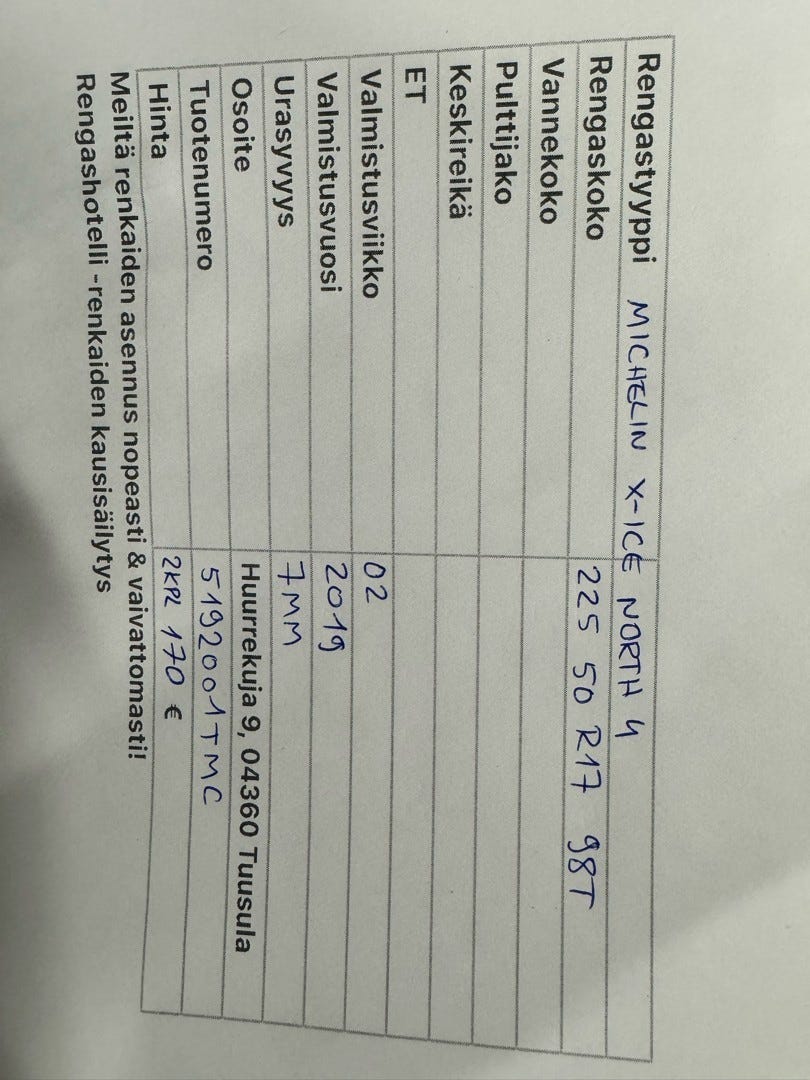 Rengastyyppi MICHELIN X-ICE NORTH 4
Rengaskoko 225 50 R17 98T
Vannekoko
Pulttijako
Keskireikä
ET
Valmistusviikko 02
Valmistusvuosi 2019
Urasyvyys 7MM
Osoite Huurrekuja 9, 04360 Tuusula
Tuotenumero 5192001TMC
Hinta 2KPL 170 €
Meiltä renkaiden asennus nopeasti & vaivattomasti!
Rengashotelli -renkaiden kausisäilytys